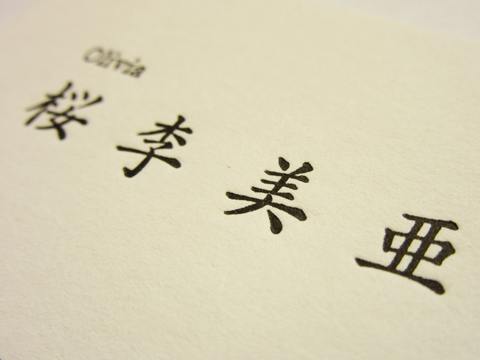 Olivia
桜李美亜